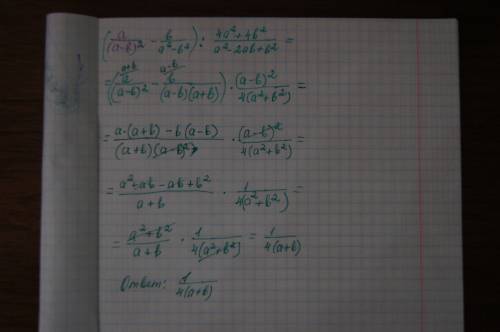 (a/(a-b)² - b/(a²-b²)) : (4a²+4b²)/(a²-2ab+b²) =
= (a^(a+b)/(a-b)² - b^(a-b)/((a-b)(a+b))) · (a-b)²/(4(a²+b²)) =
= (a·(a+b) - b(a-b))/((a+b)(a-b)²) · (a-b)²/(4(a²+b²)) =
= (a²+ab-ab+b²)/(a+b) · 1/(4(a²+b²)) =
= (a²+b²)/(a+b) · 1/(4(a²+b²)) = 1/(4(a+b))
Ответ: 1/(4(a+b))